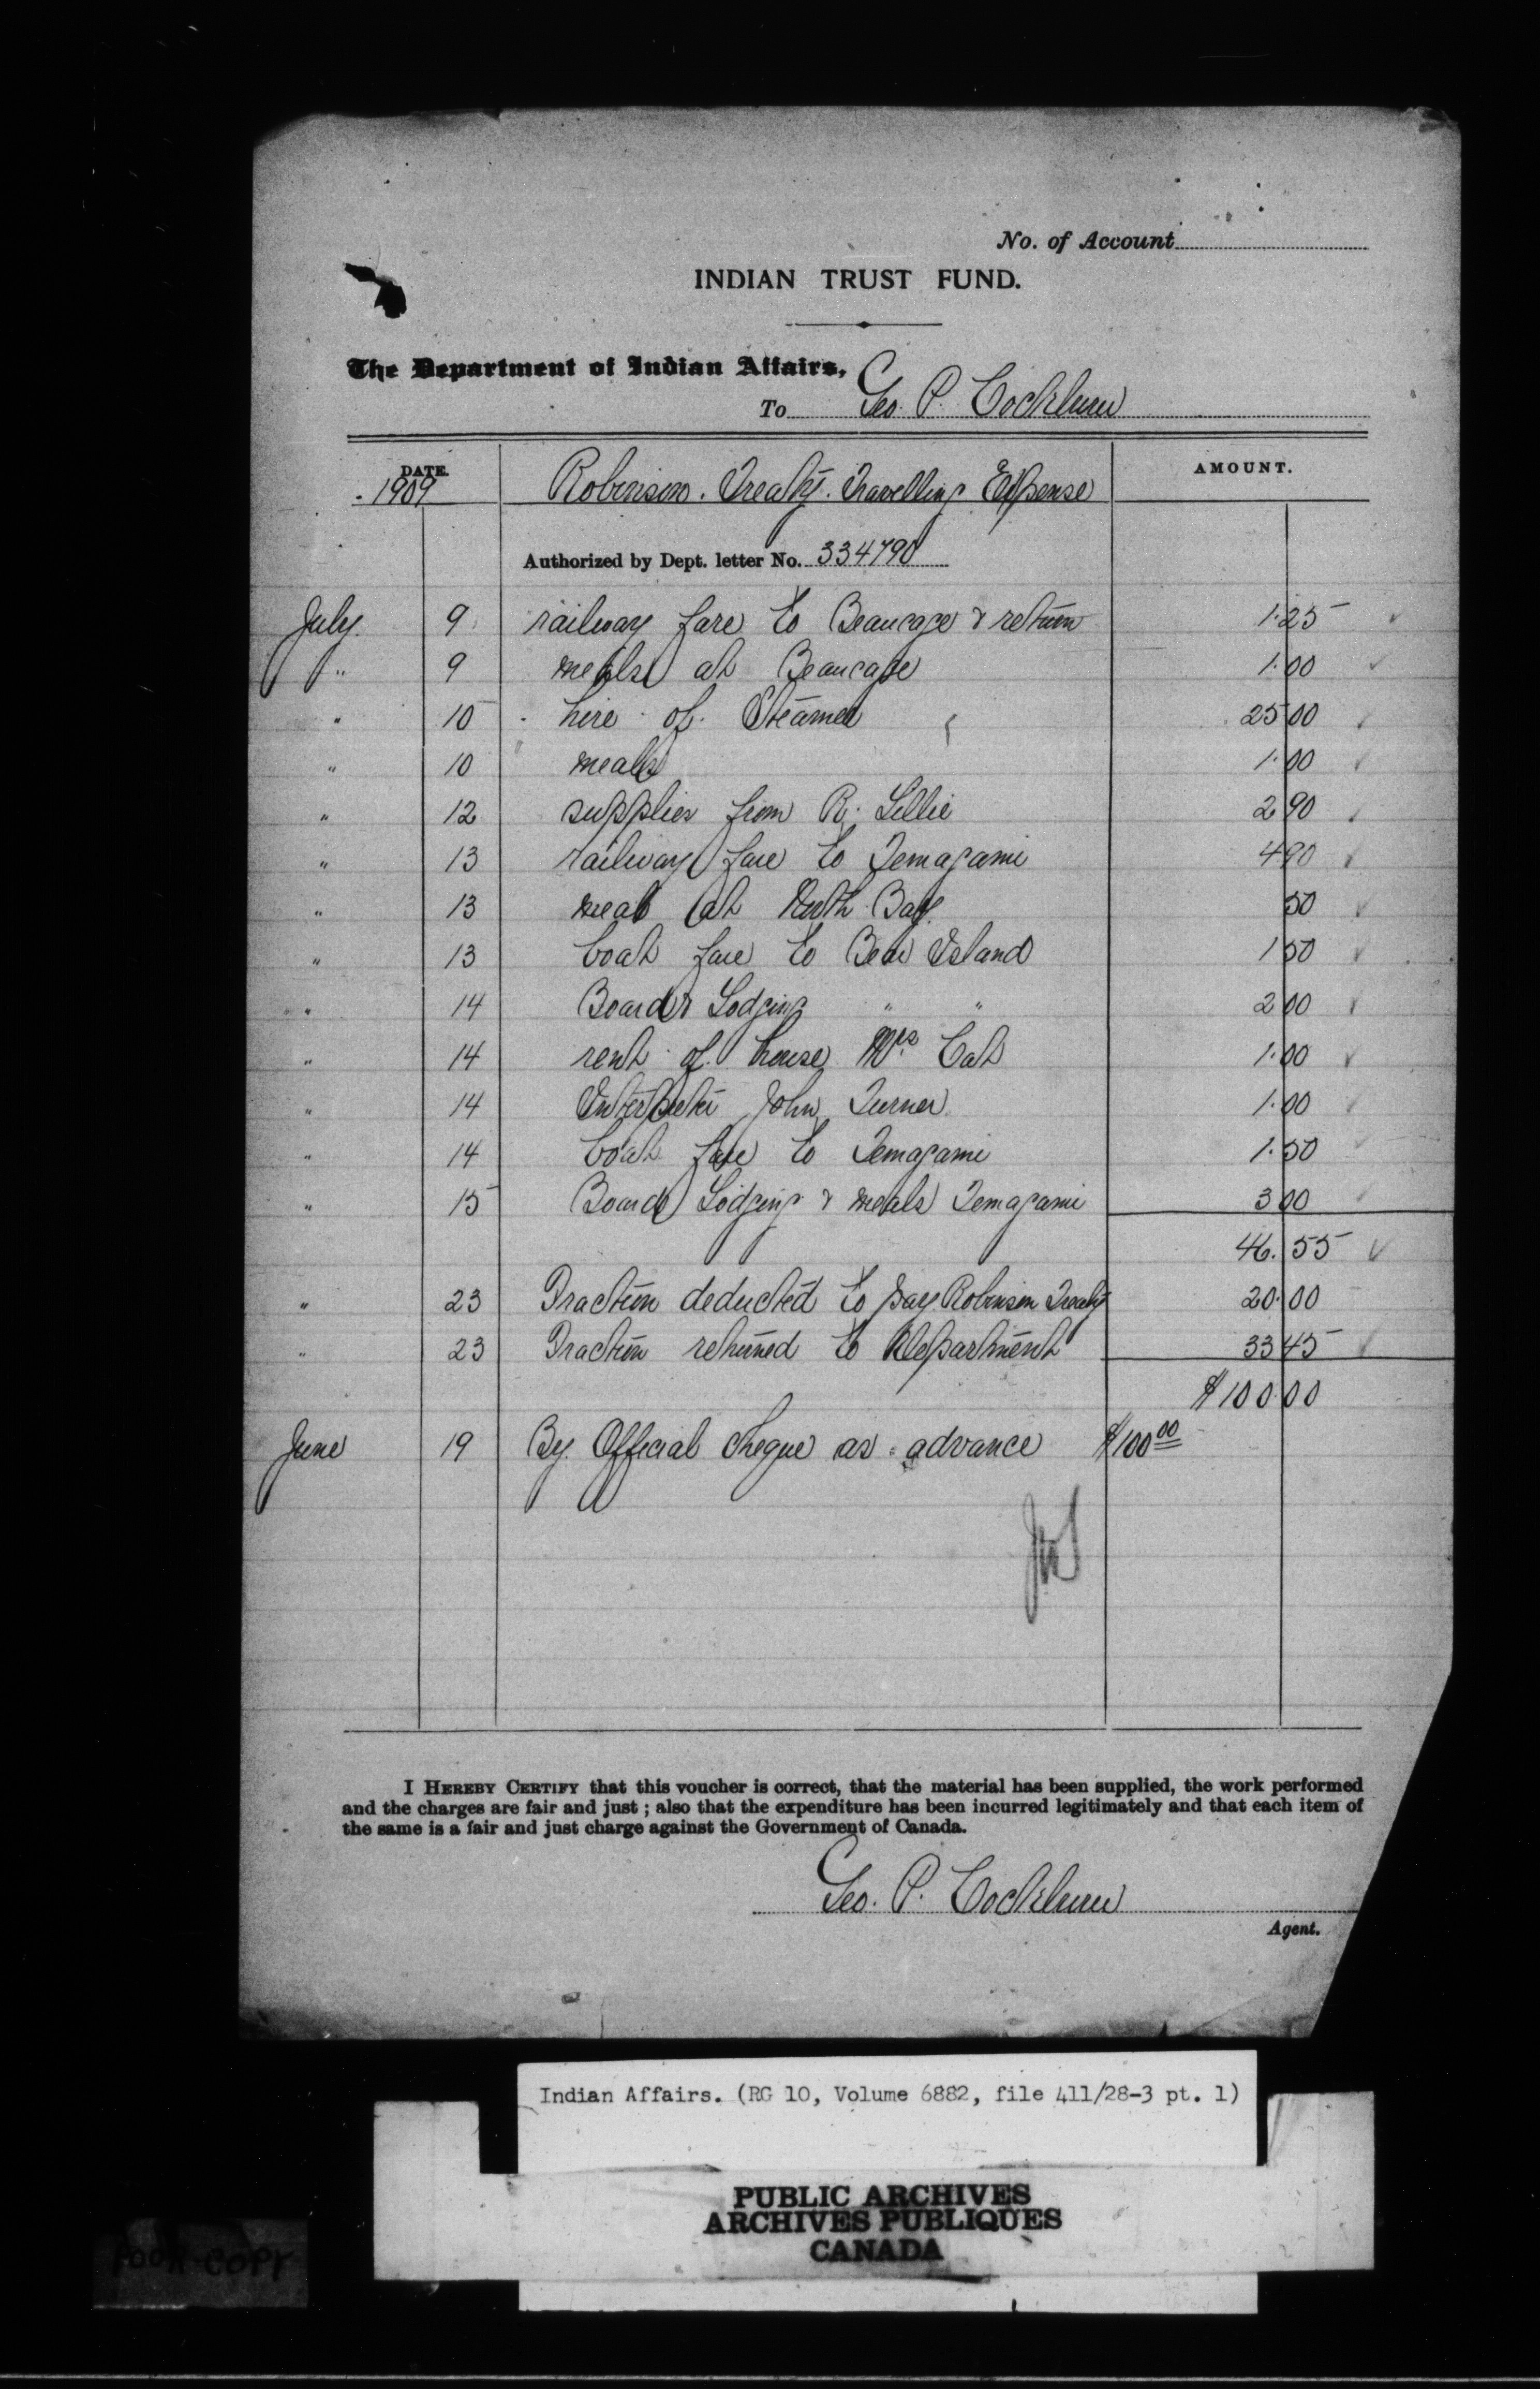 No. of Account
INDIAN TRUST FUND.
The Department of Indian Affairs,
To Geo. P. Cockburn
DATE. 1909 Robinson Treaty Travelling Expense AMOUNT.
Authorized by Dept. letter No. 334790
July 9 railway fare to Beaucage & return 1.25
" 9 meals at Beaucage 1.00
" 10 hire of Steamer 25 00
" 10 meals 1.00
" 12 supplies from R. Lillie 2 90
" 13 railway fare to Temagami 4 90
" 13 meal at North Bay 50
" 13 boat fare to Bear Island 1 50
" 14 Board & Lodging " " 2 00
" 14 rent of house Mrs. Cat 1.00
" 14 Interpreter John Turner 1.00
" 14 boat fare to Temagami 1.50
" 15 Board Lodging & meals Temagami 3 00
46.55
" 23 Fraction deducted to pay Robinson Treaty 20.00
" 23 Fraction returned to Department 33 45
$100 00
June 19 By Official Cheque as advance $100 00
I HEREBY CERTIFY that this voucher is correct, that the material has been supplied, the work performed
and the charges are fair and just ; also that the expenditure has been incurred legitimately and that each item of
the same is a fair and just charge against the Government of Canada.
Geo. P. Cockburn
Agent.
Indian Affairs. (RG 10, Volume 6882, file 411/28-3 pt. 1)
PUBLIC ARCHIVES
ARCHIVES PUBLIQUES
CANADA
POOR COPY